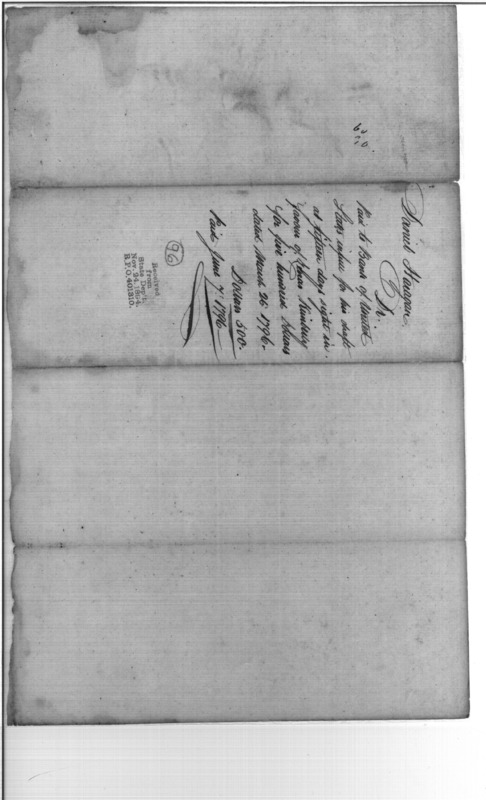 Daniel Haugan
Dr.
Paid to Bank of United
States infavr for his draft
at fifteen days sight in
favour of Ebenr Kinsley
for five hundred dollars
dated March 26 1796.
Dollars 500.
Paid June 7 1796
96
Received
from
State Dep't,
Nov. 24, 1894.
R.P.O. 401310.